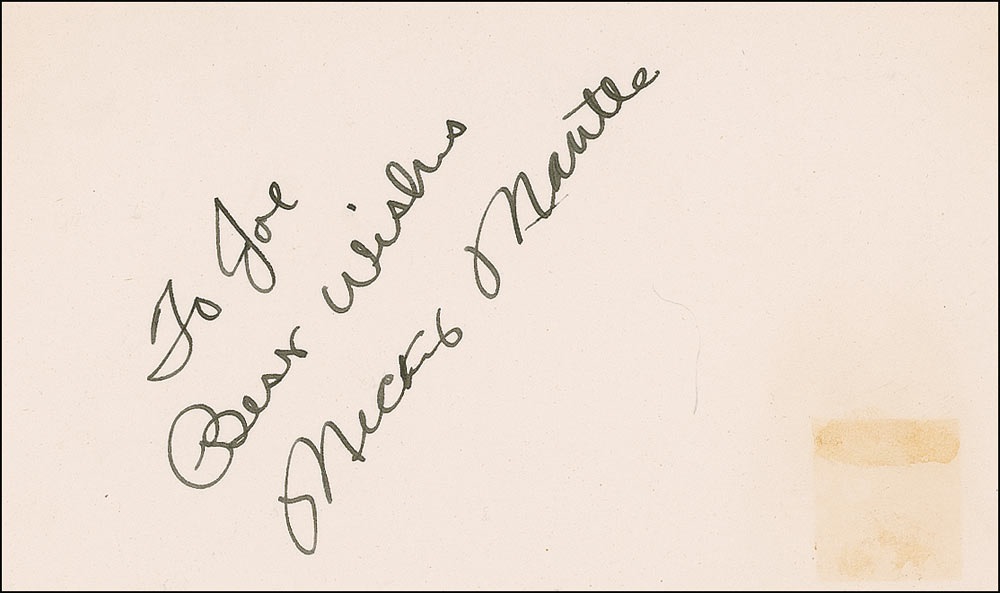 To Joe
Best Wishes
Mickey Mantle